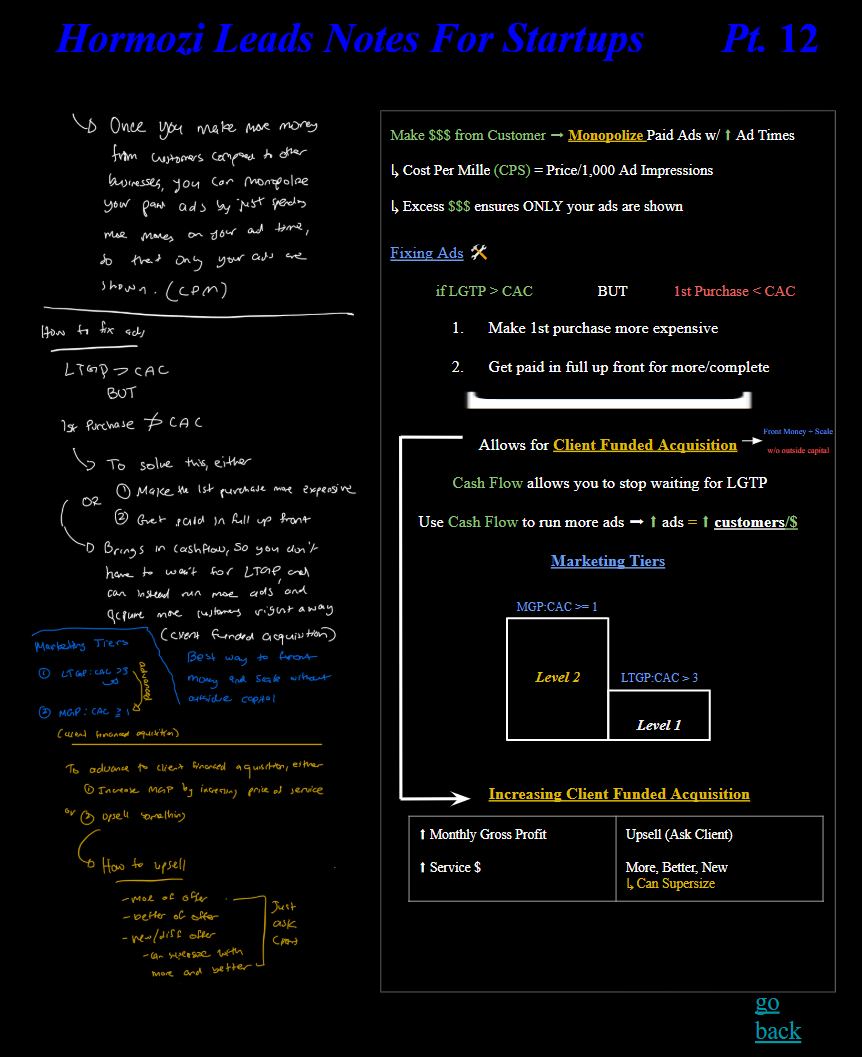 Hormozi Leads Notes For Startups Pt. 12
↳ Once you make more money
from customers compared to other
businesses, you can monopolize
your paid ads by just spending
more money on your ad time,
so that only your ads are
shown. (CPM)
How to fix ads
LTGP > CAC
BUT
1st Purchase ≯ CAC
↳ To solve this, either
① Make the 1st purchase more expensive
OR
② Get paid in full up front
↳ Brings in cashflow, so you don't
have to wait for LTGP, and
can instead run more ads, and
acquire more customers right away
(client funded acquisition)
Marketing Tiers
① LTGP:CAC >3
② MGP:CAC ≥ 1
advanced
(client financed acquisition)
Best way to front
money and scale without
outside capital
To advance to client financed acquisition, either
① Increase MGP by increasing price of service
or ② upsell something
↳ How to upsell
- more of offer
- better of offer
- new/diff offer
- can supersize with
more and better
Just
ask
Make $$$ from Customer → Monopolize Paid Ads w/ ↑ Ad Times
↳ Cost Per Mille (CPS) = Price/1,000 Ad Impressions
↳ Excess $$$ ensures ONLY your ads are shown
Fixing Ads 🛠
if LGTP > CAC BUT 1st Purchase < CAC
1. Make 1st purchase more expensive
2. Get paid in full up front for more/complete
Allows for Client Funded Acquisition →
Front Money + Scale
w/o outside capital
Cash Flow allows you to stop waiting for LGTP
Use Cash Flow to run more ads → ↑ ads = ↑ customers/$
Marketing Tiers
MGP:CAC >= 1
Level 2
LTGP:CAC > 3
Level 1
Increasing Client Funded Acquisition
↑ Monthly Gross Profit
↑ Service $
Upsell (Ask Client)
More, Better, New
↳ Can Supersize
go
back